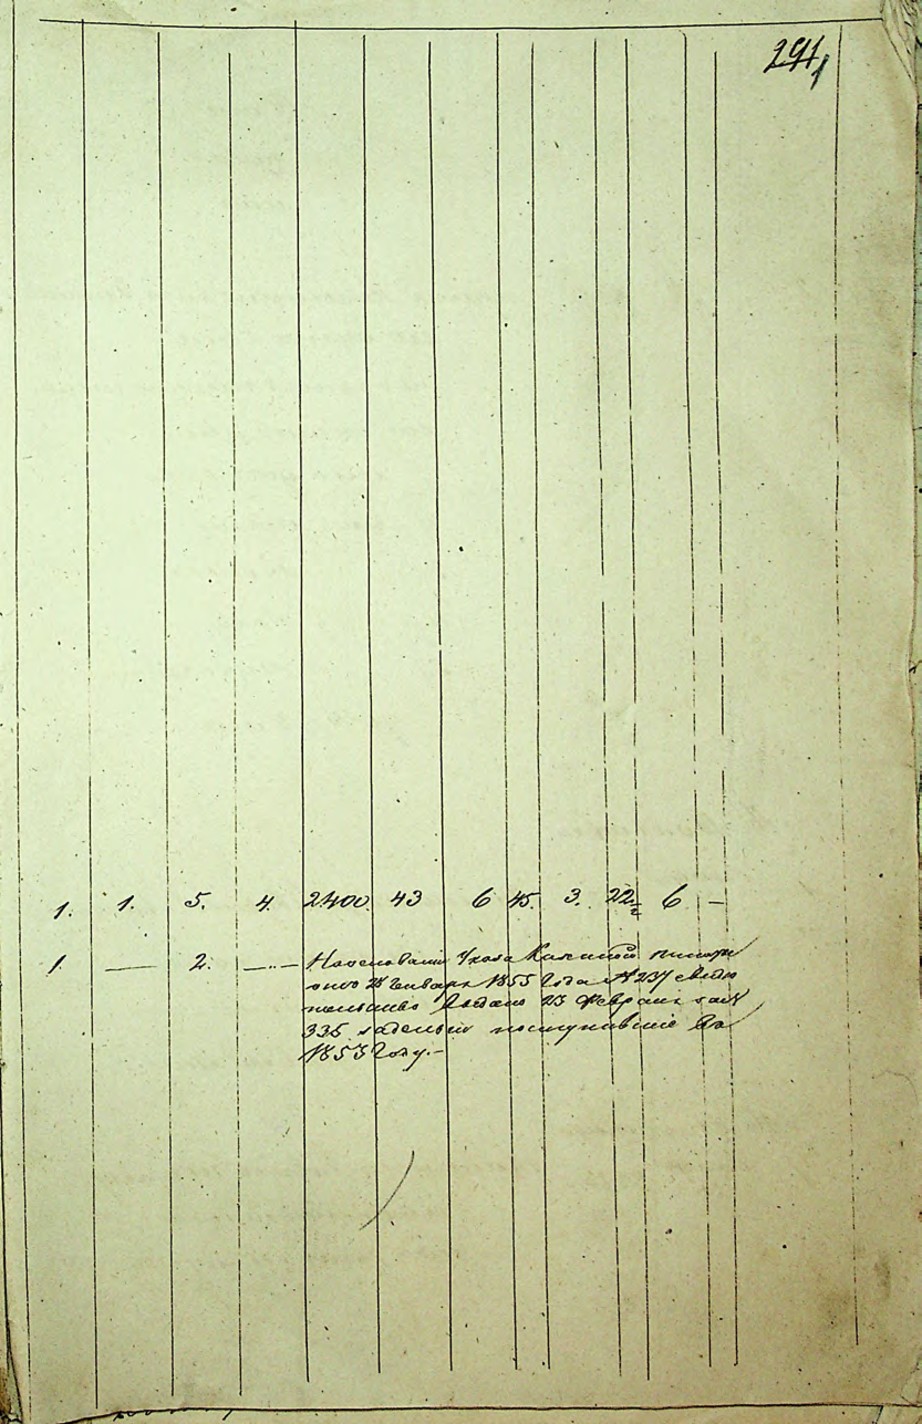 291
1. 1. 5. 4. 2400. 43 6 45. 3. 22 1/2 6 —
1. — 2. — На основании Указа Казенной
оной 28 Генваря 1855 года № 237
выдано 23 Февраля за №
335 поступившие в
1853 году. —